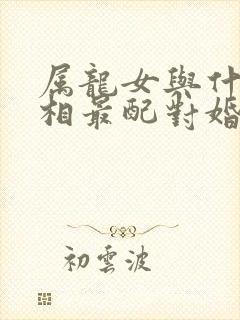 属龍女與什
相最配對婚
初雲波